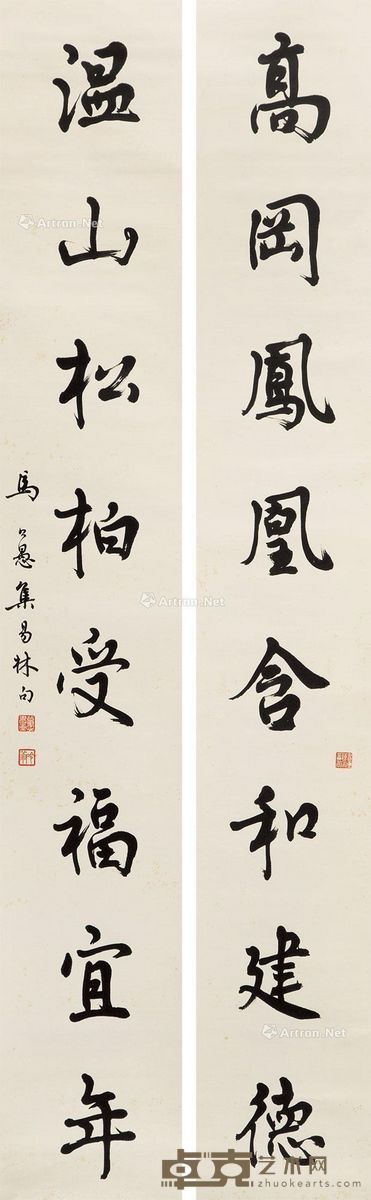 高岡鳳凰含和建德
温山松柏受福宜年
馬公愚集易林句
Artron.Net
Artron.Net
Artron.Net
卓克艺术网
zhuokearts.com